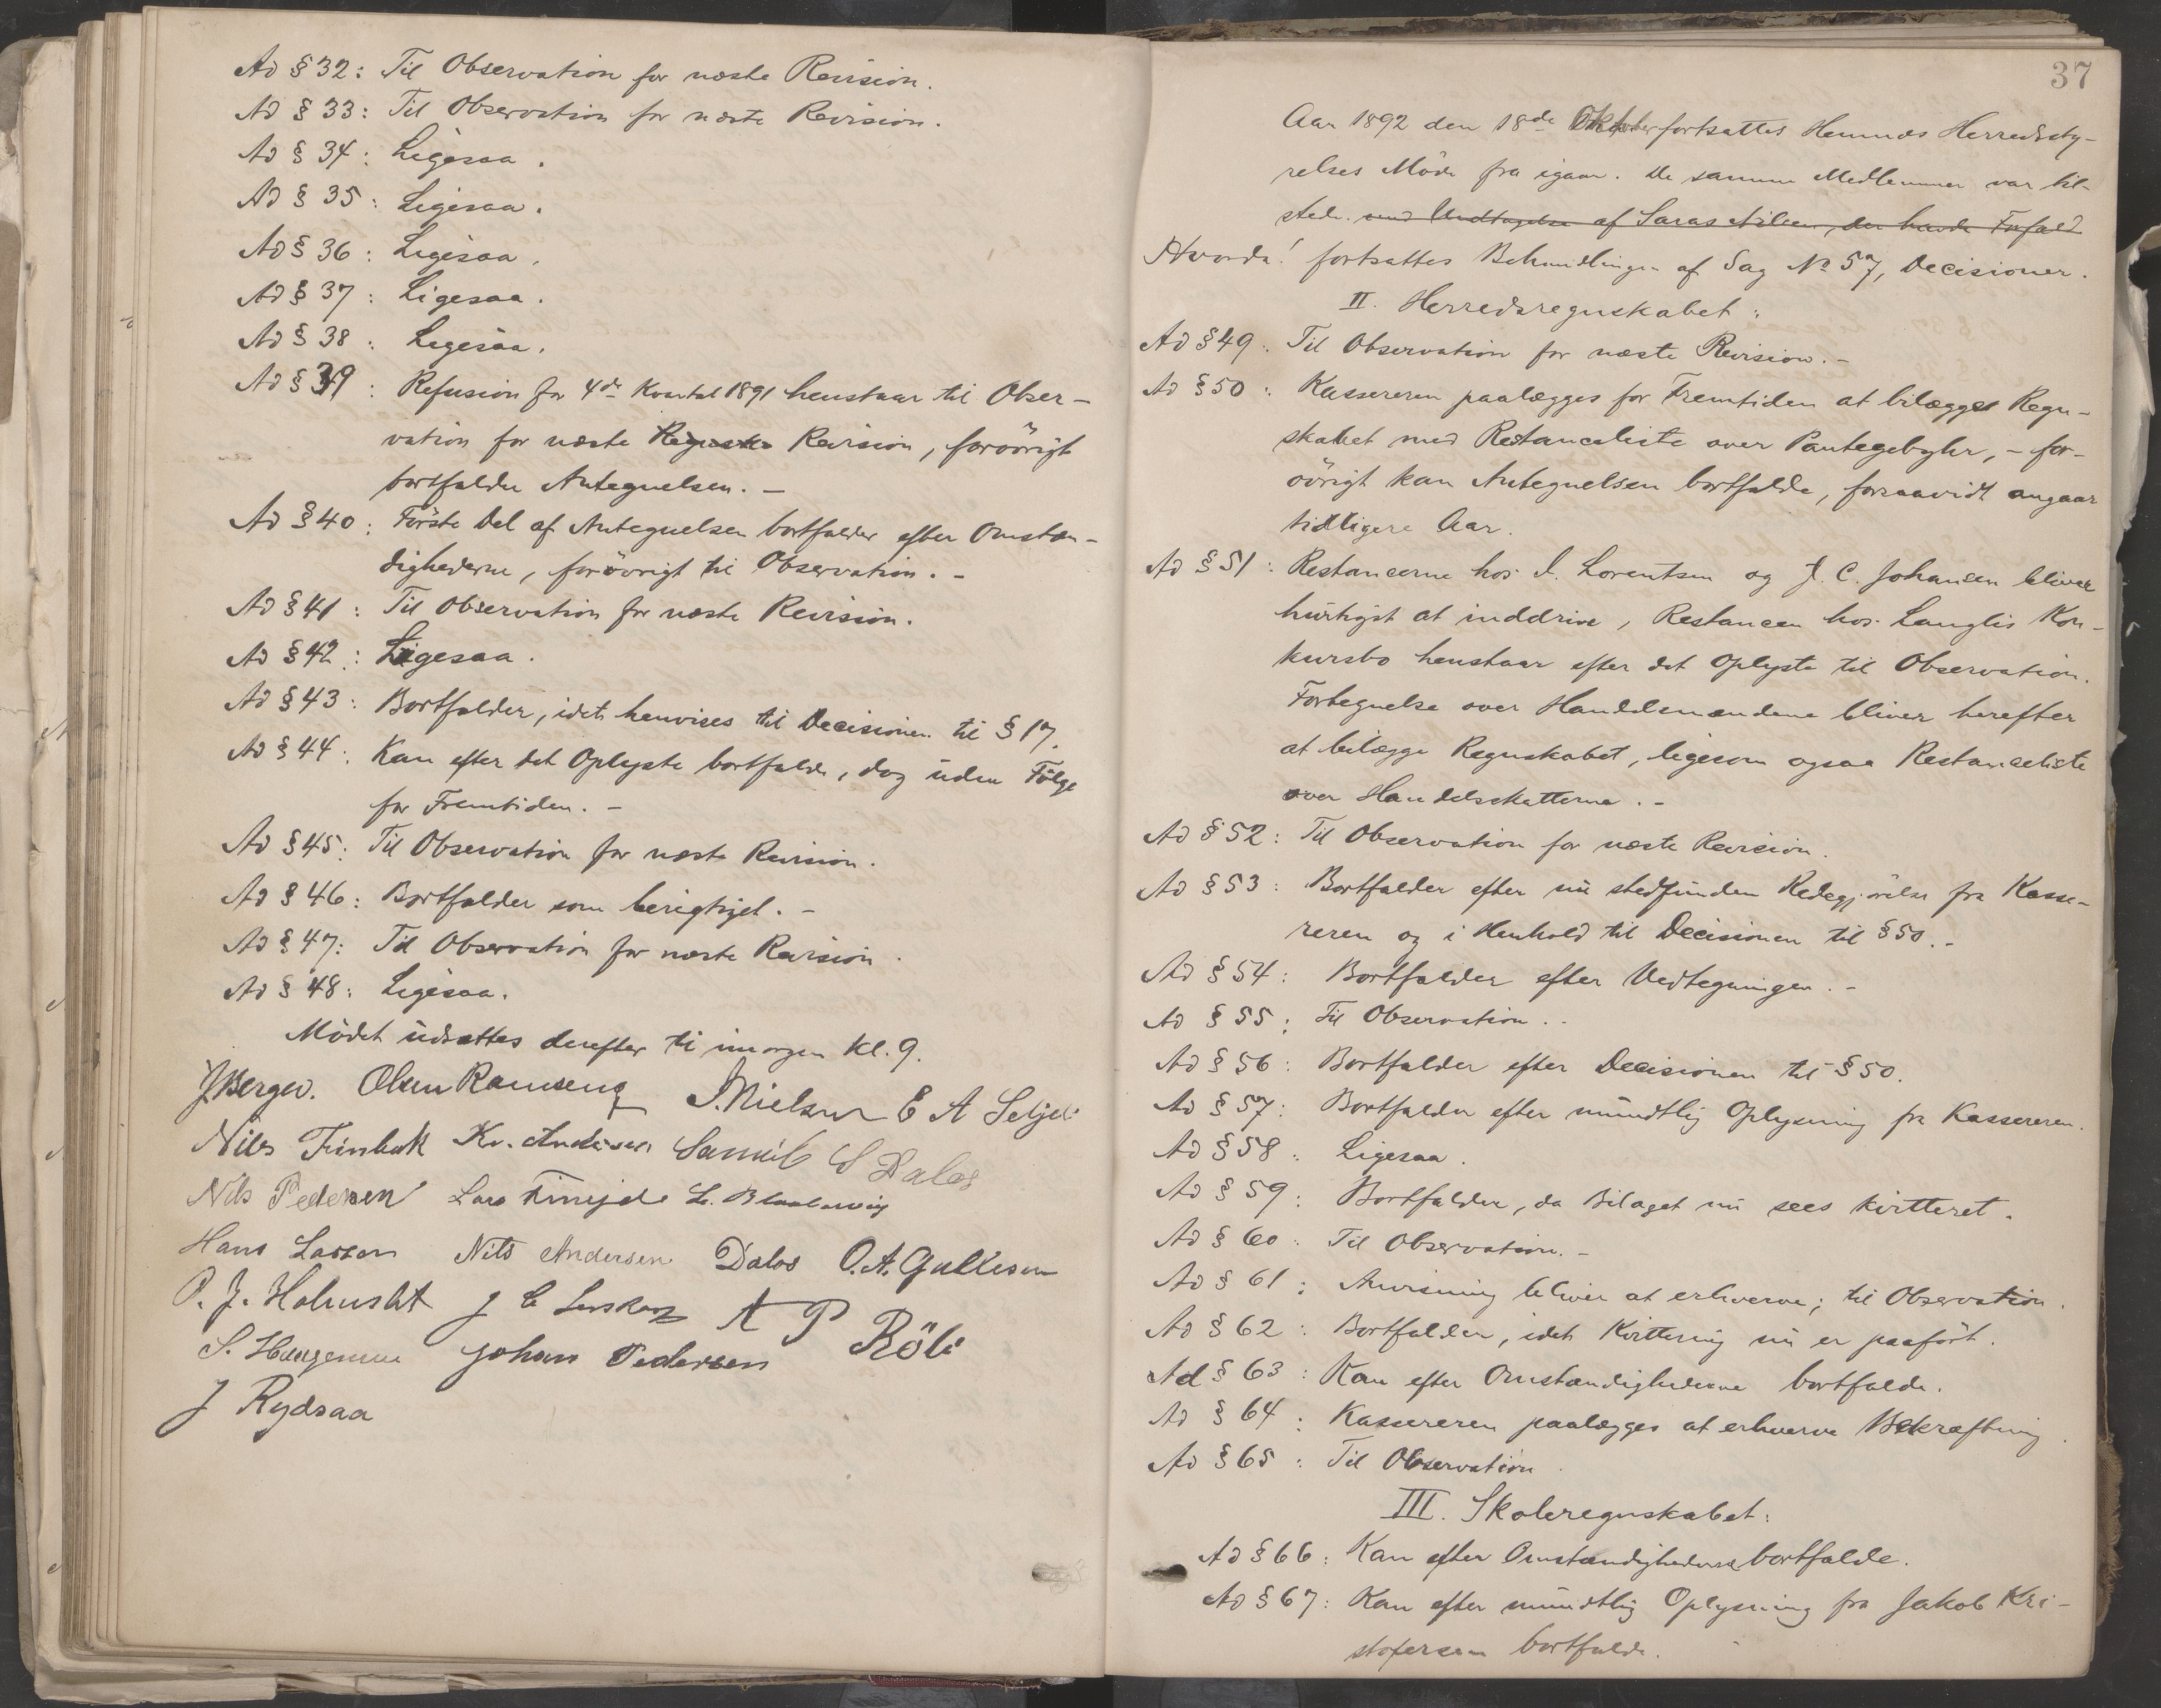 Ad § 32: Til Observation for næste Revision.
Ad § 33: Til Observation for næste Revision.
Ad § 34: Ligesaa.
Ad § 35: Ligesaa.
Ad § 36: Ligesaa.
Ad § 37: Ligesaa.
Ad § 38: Ligesaa.
Ad § 39: Refusion for 4de Kvartal 1891 henstaar til Obser-
vation for næste Revision, forövrigt
bortfalder Antegnelsen. -
Ad § 40: Förste Del af Antegnelsen bortfalder efter Omstæn-
dighederne, forövrigt til Observation. -
Ad § 41: Til Observation for næste Revision.
Ad § 42: Ligesaa.
Ad § 43: Bortfalder, idet henvises til Decisionen til § 17.
Ad § 44: Kan efter det Oplyste bortfalde, dog uden Fölge
for Fremtiden. -
Ad § 45: Til Observation for næste Revision.
Ad § 46: Bortfalder som berigtiget. -
Ad § 47: Til Observation for næste Revision.
Ad § 48: Ligesaa.
Mödet udsættes derefter til imorgen Kl. 9.
J Berger. Olsen Ramseng J. Nielsen E A Seljeli
Nils Finbak Kr. Andersen Samuel S Dalos
Nils Pedersen Lars
Hans Larsen Nils Andersen Dalos O. A. Gullesen
P. J. Holmslet J C A P Röli
S. Johan Pedersen
J Rydsaa
37
Aar 1892 den 18de Oktober fortsattes Hemnæs Herredssty-
relses Möde fra igaar. De samme Medlemmer var til-
stede. med Undtagelse af Saras Nilsen, der havde Forfald
Hvorda! fortsattes Behandlingen af Sag No 57, Decisioner.
II. Herredsregnskabet:
Ad § 49: Til Observation for næste Revision. -
Ad § 50: Kassereren paalægges for Fremtiden at bilægge Regn-
skabet med Restanceliste over Pantegebyhr, - for-
övrigt kan Antegnelsen bortfalde, forsaavidt angaar
tidligere Aar.
Ad § 51: Restancerne hos I. Lorentsen og J. C. Johansen bliver
hurtigst at inddrive, Restancen hos Langlis Kon-
kursbo henstaar efter det Oplyste til Observation.
Fortegnelse over Handelsmændene bliver herefter
at bilægge Regnskabet, ligesom ogsaa Restanceliste
over Handelsskatterne. -
Ad § 52: Til Observation for næste Revision.
Ad § 53: Bortfalder efter nu stedfunden Redegjörelse fra Kasse-
reren og i Henhold til Decisionen til § 50. -
Ad § 54: Bortfalder efter Vedtegningen. -
Ad § 55: Til Observation. -
Ad § 56: Bortfalder efter Decisionen til § 50.
Ad § 57: Bortfalder efter mundtlig Oplysning fra Kassereren.
Ad § 58: Ligesaa.
Ad § 59: Bortfalder, da Bilaget nu sees kvitteret.
Ad § 60: Til Observation. -
Ad § 61: Anvisning bliver at erhverve; til Observation.
Ad § 62: Bortfalder, idet Kvittering nu er paafört.
Ad § 63: Kan efter Omstændighederne bortfalde.
Ad § 64: Kassereren paalægges at erhverve Bekræftning.
Ad § 65: Til Observation
III. Skoleregnskabet:
Ad § 66: Kan efter Omstændighederne bortfalde.
Ad § 67: Kan efter mundtlig Oplysning fra Jakob Kri-
stofersen bortfalde.